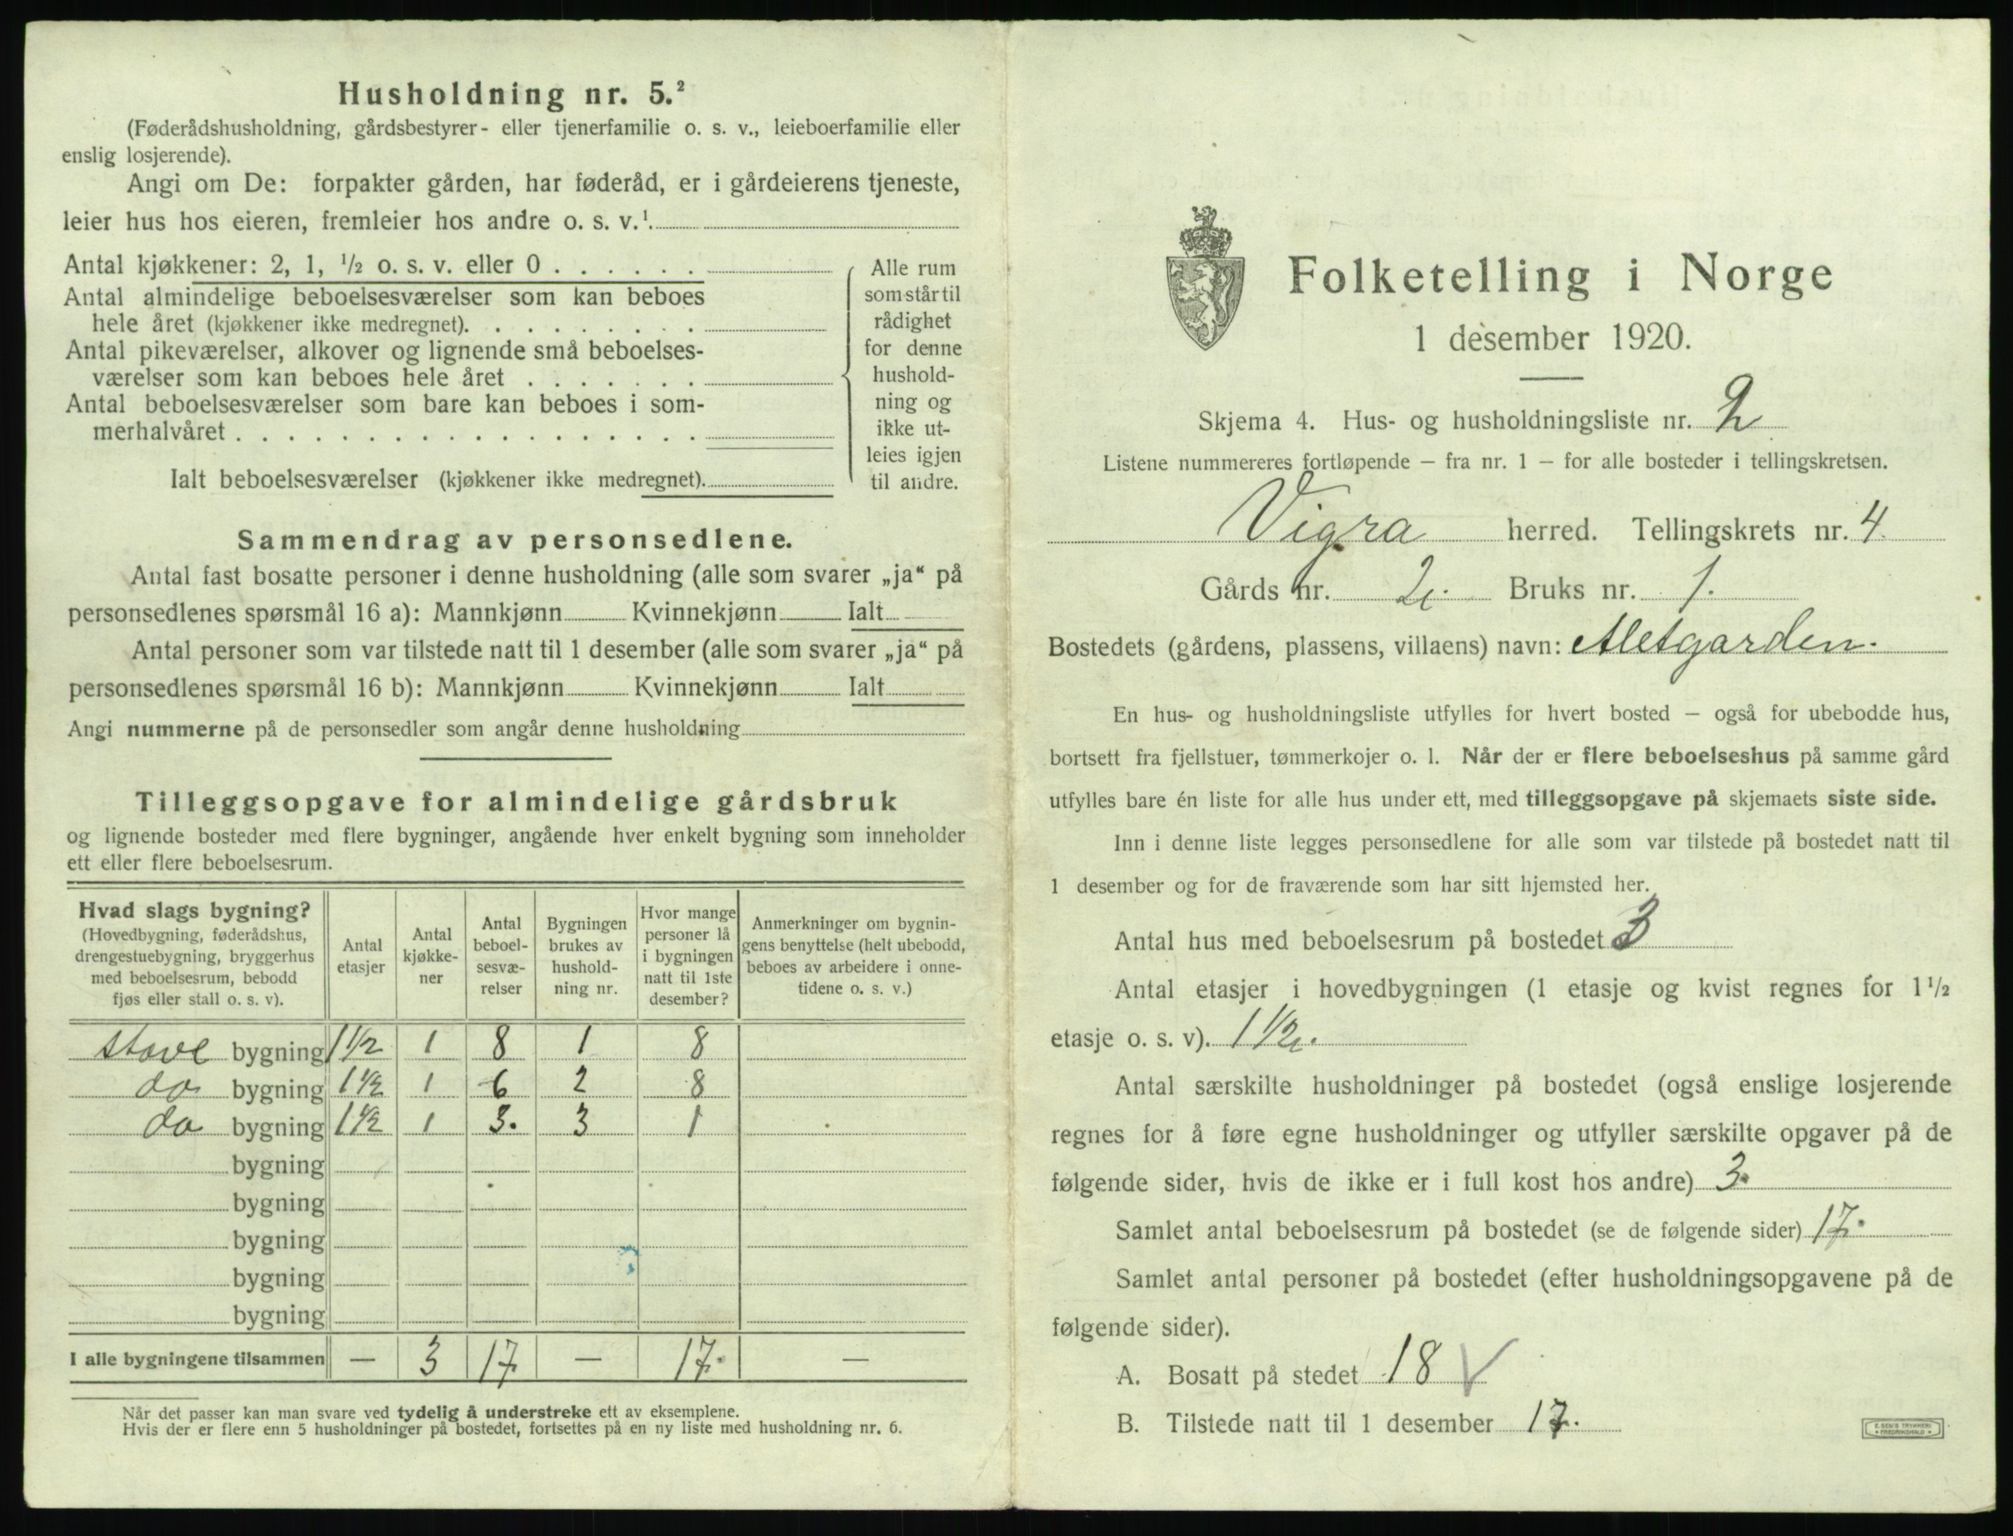 Husholdning nr. 5.²
(Føderådshusholdning, gårdsbestyrer- eller tjenerfamilie o. s. v., leieboerfamilie eller
enslig losjerende).
Angi om De: forpakter gården, har føderåd, er i gårdeierens tjeneste,
leier hus hos eieren, fremleier hos andre o. s. v.¹
Antal kjøkkener: 2, 1, ½ o. s. v. eller 0
Antal almindelige beboelsesværelser som kan beboes
hele året (kjøkkener ikke medregnet).
Antal pikeværelser, alkover og lignende små beboelses-
værelser som kan beboes hele året
Antal beboelsesværelser som bare kan beboes i som-
merhalvåret
Ialt beboelsesværelser (kjøkkener ikke medregnet).
Alle rum
som står til
rådighet
for denne
hushold-
ning og
ikke ut-
leies igjen
til andre.
Sammendrag av personsedlene.
Antal fast bosatte personer i denne husholdning (alle som svarer „ja“ på
personsedlenes spørsmål 16 a): Mannkjønn Kvinnekjønn Ialt
Antal personer som var tilstede natt til 1 desember (alle som svarer „ja“ på
personsedlenes spørsmål 16 b): Mannkjønn Kvinnekjønn Ialt
Angi nummerne på de personsedler som angår denne husholdning
Tilleggsopgave for almindelige gårdsbruk
og lignende bosteder med flere bygninger, angående hver enkelt bygning som inneholder
ett eller flere beboelsesrum.
Hvad slags bygning?
(Hovedbygning, føderådshus,
drengestuebygning, bryggerhus
med beboelsesrum, bebodd
fjøs eller stall o. s. v).
Antal
etasjer
Antal
kjøkke-
ner
Antal
beboel-
sesvæ-
relser
Bygningen
brukes av
hushold-
ning nr.
Hvor mange
personer lå
i bygningen
natt til 1ste
desember?
Anmerkninger om bygnin-
gens benyttelse (helt ubebodd,
beboes av arbeidere i onne-
tidene o. s. v.)
stove bygning 1½ 1 8 1 8
do bygning 1½ 1 6 2 8
do bygning 1½ 1 3. 3 1
bygning
bygning
bygning
bygning
bygning
I alle bygningene tilsammen — 3 17 — 17. —
Når det passer kan man svare ved tydelig å understreke ett av eksemplene.
Hvis der er flere enn 5 husholdninger på bostedet, fortsettes på en ny liste med husholdning nr. 6.
Folketelling i Norge
1 desember 1920.
Skjema 4. Hus- og husholdningsliste nr. 2
Listene nummereres fortløpende – fra nr. 1 – for alle bosteder i tellingskretsen.
Vigra herred. Tellingskrets nr. 4.
Gårds nr. 2. Bruks nr. 1.
Bostedets (gårdens, plassens, villaens) navn: Aletgarden.
En hus- og husholdningsliste utfylles for hvert bosted – også for ubebodde hus,
bortsett fra fjellstuer, tømmerkojer o. l. Når der er flere beboelseshus på samme gård
utfylles bare én liste for alle hus under ett, med tilleggsopgave på skjemaets siste side.
Inn i denne liste legges personsedlene for alle som var tilstede på bostedet natt til
1 desember og for de fraværende som har sitt hjemsted her.
Antal hus med beboelsesrum på bostedet 3
Antal etasjer i hovedbygningen (1 etasje og kvist regnes for 1½
etasje o. s. v). 1½.
Antal særskilte husholdninger på bostedet (også enslige losjerende
regnes for å føre egne husholdninger og utfyller særskilte opgaver på de
følgende sider, hvis de ikke er i full kost hos andre) 3.
Samlet antal beboelsesrum på bostedet (se de følgende sider) 17.
Samlet antal personer på bostedet (efter husholdningsopgavene på de
følgende sider).
A. Bosatt på stedet 18 ✓
B. Tilstede natt til 1 desember 17.
E. SEM'S TRYKKERI
• FREDRIKSHALD •